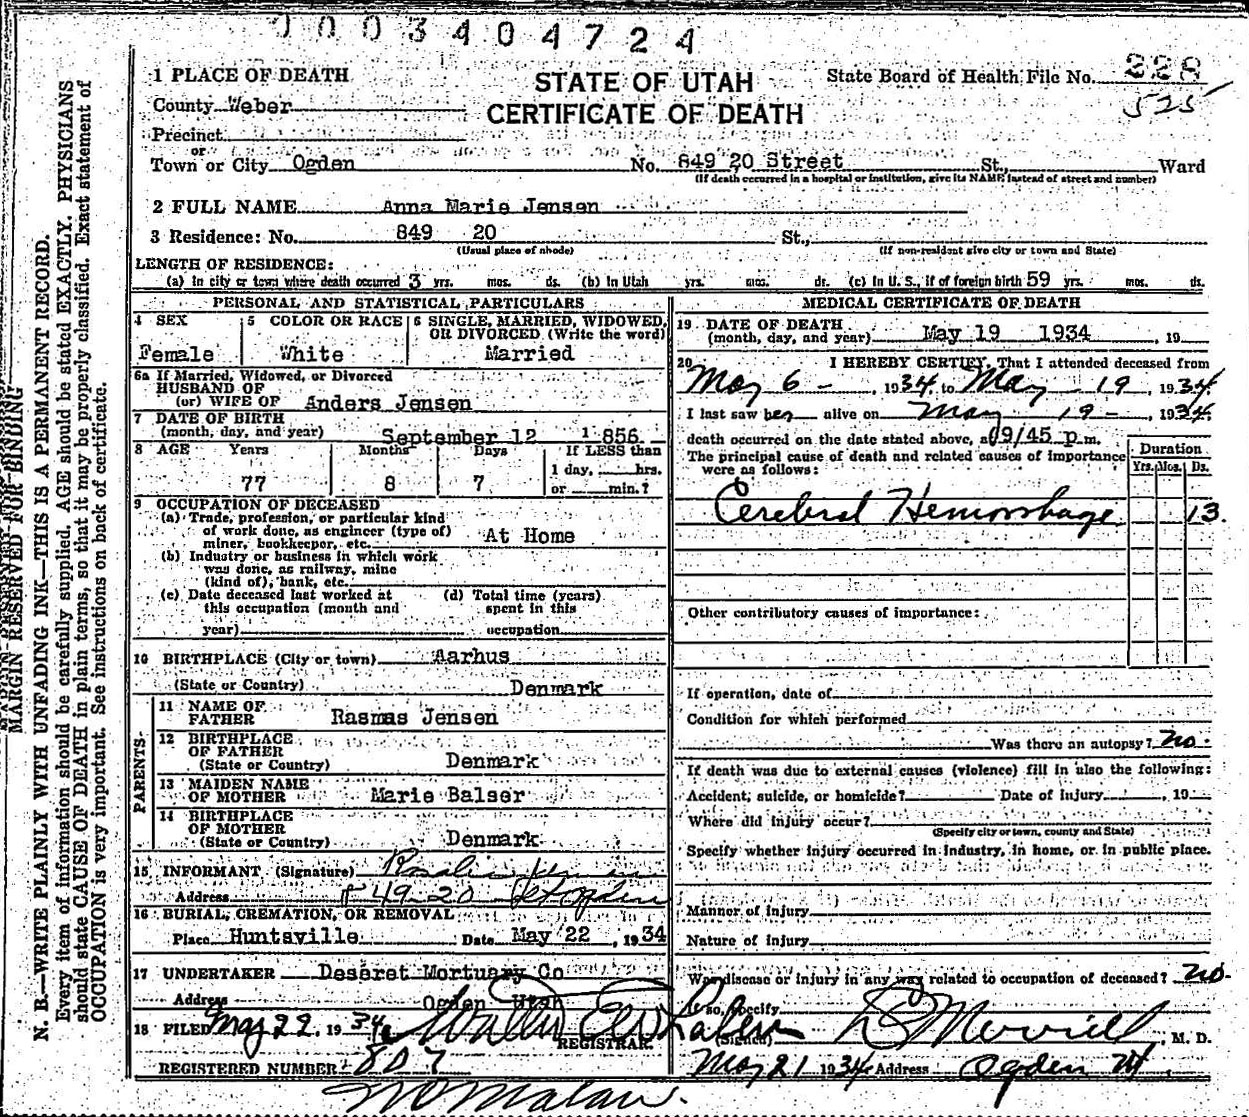 0003404724
1 PLACE OF DEATH
STATE OF UTAH
CERTIFICATE OF DEATH
State Board of Health File No. 228
525
County Weber
Precinct
or
Town or City Ogden No. 849 20 Street St., Ward
(If death occurred in a hospital or institution, give its NAME instead of street and number)
2 FULL NAME Anna Marie Jensen
3 Residence: No. 849 20 St.,
(Usual place of abode) (If non-resident give city or town and State)
LENGTH OF RESIDENCE:
(a) In city or town where death occurred 3 yrs. mos. ds. (b) In Utah yrs. mos. ds. (c) In U. S., if of foreign birth 59 yrs. mos. ds.
PERSONAL AND STATISTICAL PARTICULARS
4 SEX
Female
5 COLOR OR RACE
White
6 SINGLE, MARRIED, WIDOWED,
OR DIVORCED (Write the word)
Married
6a If Married, Widowed, or Divorced
HUSBAND OF
(or) WIFE OF Anders Jensen
7 DATE OF BIRTH
(month, day, and year) September 12 1856
8 AGE Years Months Days If LESS than
1 day, hrs.
77 8 7 or min.?
9 OCCUPATION OF DECEASED
(a) Trade, profession, or particular kind
of work done, as engineer (type of)
miner, bookkeeper, etc. At Home
(b) Industry or business in which work
was done, as railway, mine
(kind of), bank, etc.
(c) Date deceased last worked at
this occupation (month and
year)
(d) Total time (years)
spent in this
occupation
10 BIRTHPLACE (City or town) Aarhus
(State or Country) Denmark
PARENTS
11 NAME OF
FATHER Rasmas Jensen
12 BIRTHPLACE
OF FATHER
(State or Country) Denmark
13 MAIDEN NAME
OF MOTHER Marie Balser
14 BIRTHPLACE
OF MOTHER
(State or Country) Denmark
15 INFORMANT (Signature)
Address 849-20 St Ogden
16 BURIAL, CREMATION, OR REMOVAL
Place Huntsville Date May 22, 1934
17 UNDERTAKER Deseret Mortuary Co
Address Ogden Utah
18 FILED May 22, 1934
REGISTRAR.
REGISTERED NUMBER 807
MEDICAL CERTIFICATE OF DEATH
19 DATE OF DEATH
(month, day, and year) May 19 1934, 19
20 I HEREBY CERTIFY, That I attended deceased from
May 6 - , 1934, to May 19, 1934.
I last saw her alive on May 19 - , 1934.
death occurred on the date stated above, at 9/45 p.m.
The principal cause of death and related causes of importance
were as follows:
Duration
Yrs. Mos. Ds.
Cerebral Hemorrhage 13.
Other contributory causes of importance:
If operation, date of
Condition for which performed
Was there an autopsy? no.
If death was due to external causes (violence) fill in also the following:
Accident, suicide, or homicide? Date of Injury , 19
Where did injury occur?
(Specify city or town, county and State)
Specify whether injury occurred in industry, in home, or in public place.
Manner of injury
Nature of injury
Was disease or injury in any way related to occupation of deceased? no.
If so, specify
(Signed) Merrill, M. D.
May 21 1934 Address Ogden
MARGIN RESERVED FOR BINDING
N. B.—WRITE PLAINLY WITH UNFADING INK—THIS IS A PERMANENT RECORD.
Every item of information should be carefully supplied. AGE should be stated EXACTLY. PHYSICIANS
should state CAUSE OF DEATH in plain terms, so that it may be properly classified. Exact statement of
OCCUPATION is very important. See instructions on back of certificate.